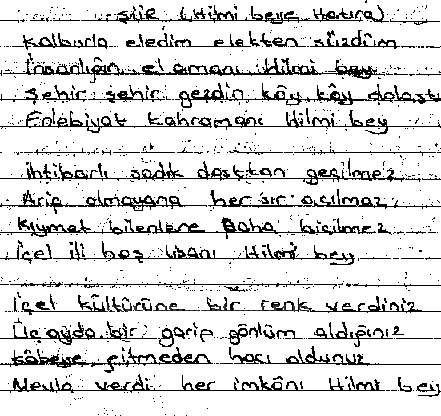 Şiir (Hilmi beye Hatıra)
Kalburla eledim elekten süzdüm
İnsanlığın el amanı Hilmi bey
Şehir şehir gezdin köy köy dolaşt
Edebiyat kahramanı Hilmi bey
İhtibarlı sadık dosttan geçilmez
Arif olmayana her sır açılmaz
Kıymet bilenlere Paha biçilmez
İçel ili baş lisanı Hilmi bey
İçel kültürüne bir renk verdiniz
Üç ayda bir garip gönlüm aldığınız
Kâbeye gitmeden hacı oldunuz
Mevla verdi her imkânı Hilmi bey